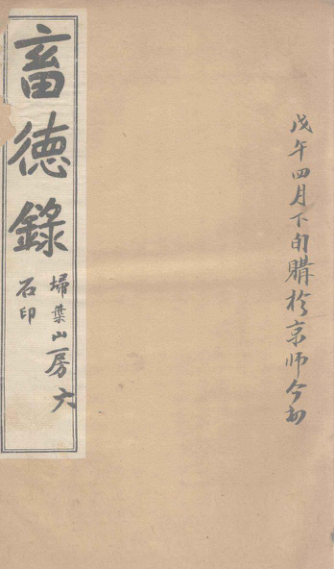 戊午四月下旬購於京师
畜德錄
埽葉山房
石印
六